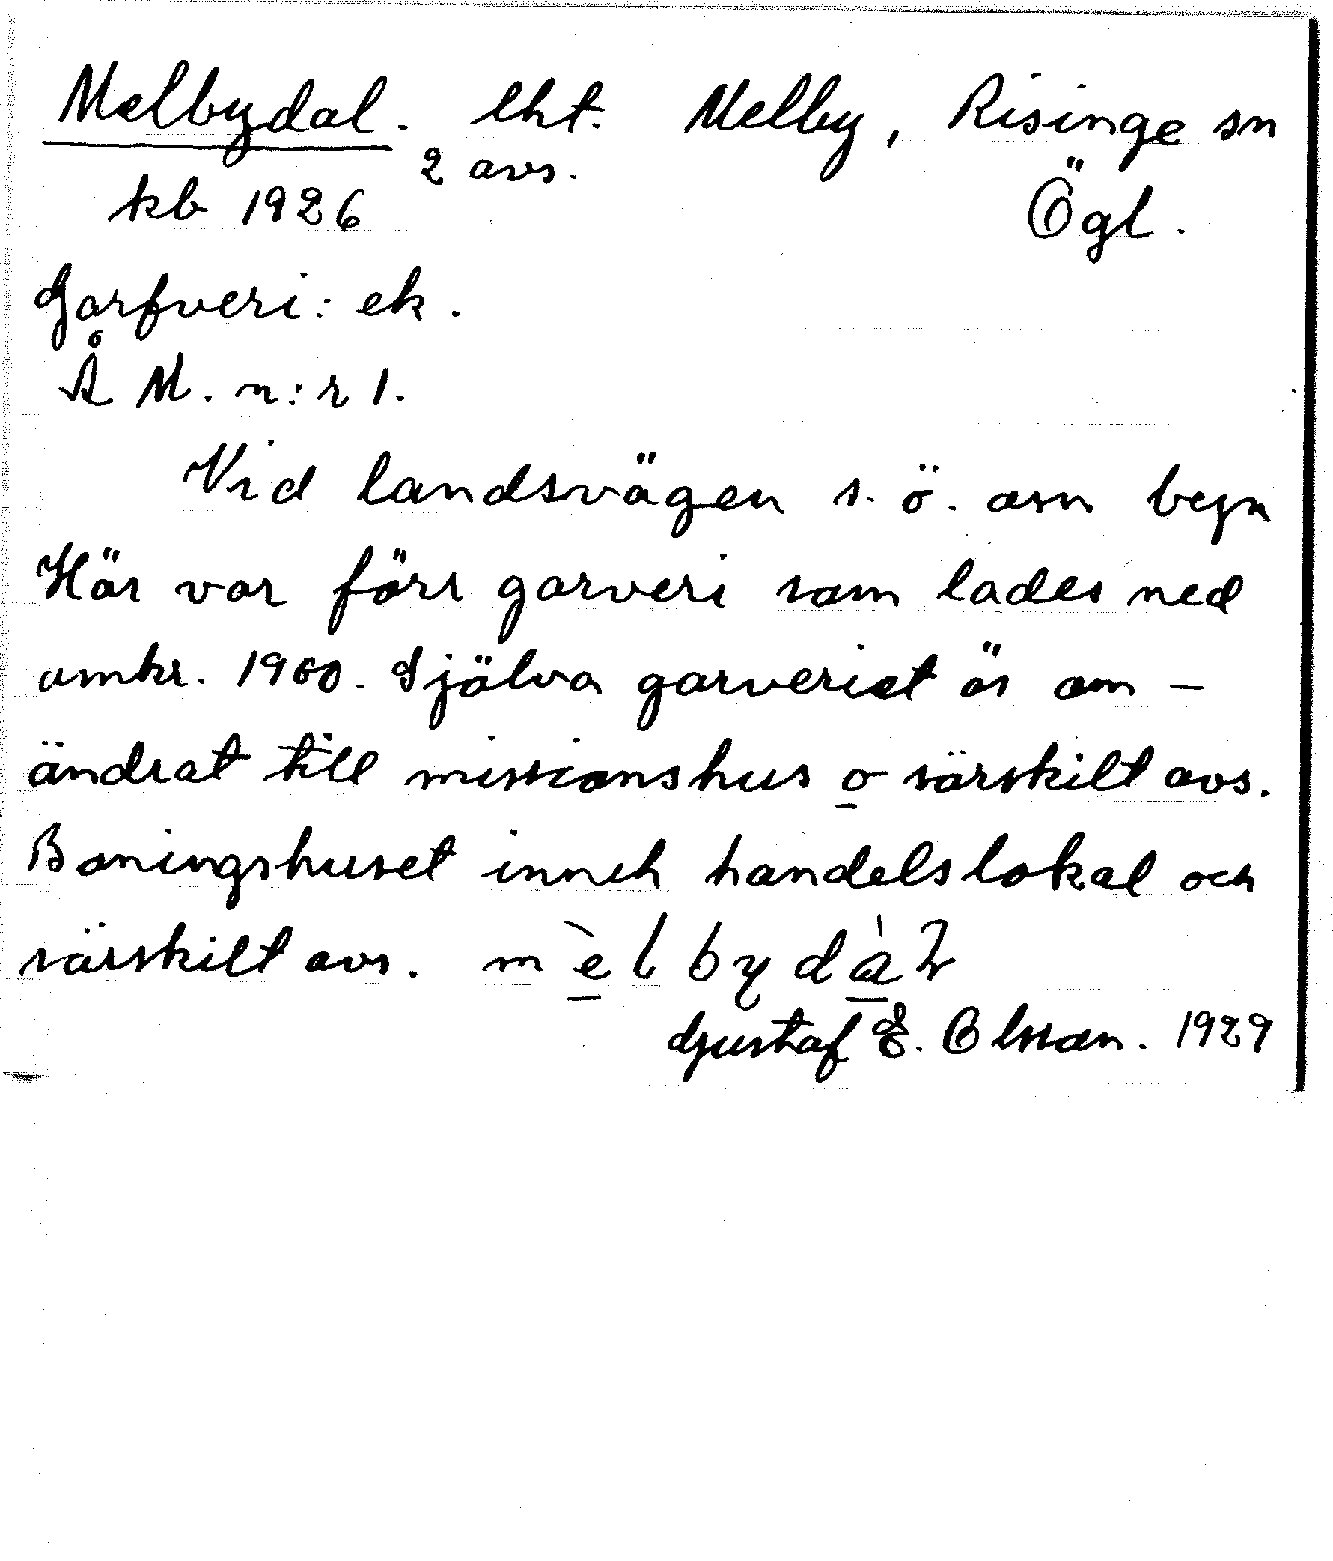 Melbydal. lht. Melby, Risinge sn
2 avs.
kb 1926 Ögl.
Garfveri: ek.
Å M. n:r 1.
Vid landsvägen s. ö. om byn
Här var förr garveri som lades ned
omkr. 1900. Själva garveriet är om-
ändrat till missionshus o särskilt avs.
Boningshuset inneh handelslokal och
särskilt avs. mèlbydàl
Gustaf E. Olsson. 1929